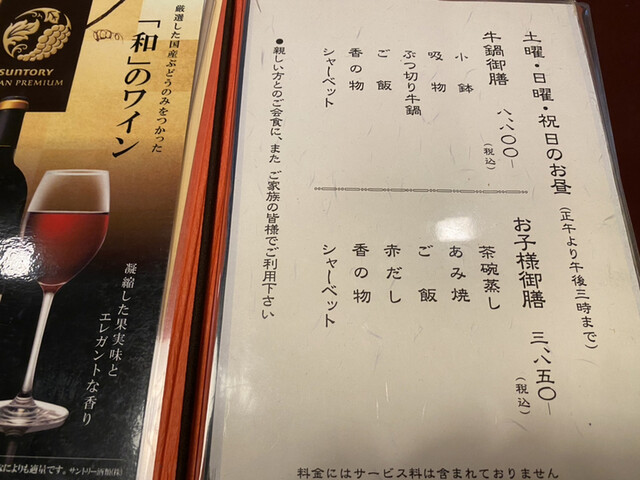 土曜・日曜・祝日のお昼(正午より午後三時まで)
牛鍋御膳 八、八〇〇-(税込)
小鉢
吸物
ぶつ切り牛鍋
ご飯
香の物
シャーベット
お子様御膳 三、八五〇-(税込)
茶碗蒸し
あみ焼
ご飯
赤だし
香の物
シャーベット
●親しい方とのご会食に、また ご家族の皆様でご利用下さい
料金にはサービス料は含まれておりません
厳選した国産ぶどうのみをつかった
「和」のワイン
SUNTORY
AN PREMIUM
凝縮した果実味と
エレガントな香り
によりも適量です。サントリー酒類(株)